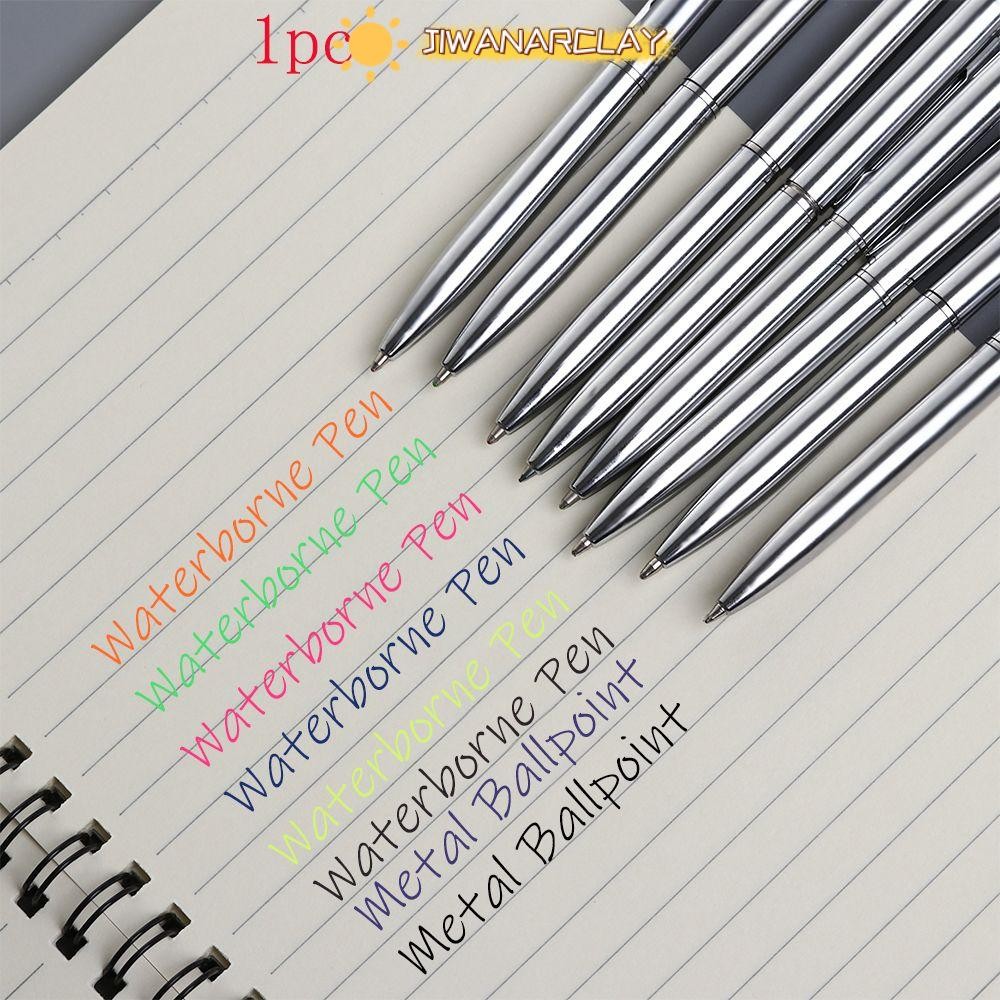 1pc
JIWANARCLAY
Waterborne Pen
Waterborne Pen
Waterborne Pen
Waterborne Pen
Waterborne Pen
Waterborne Pen
Metal Ballpoint
Metal Ballpoint